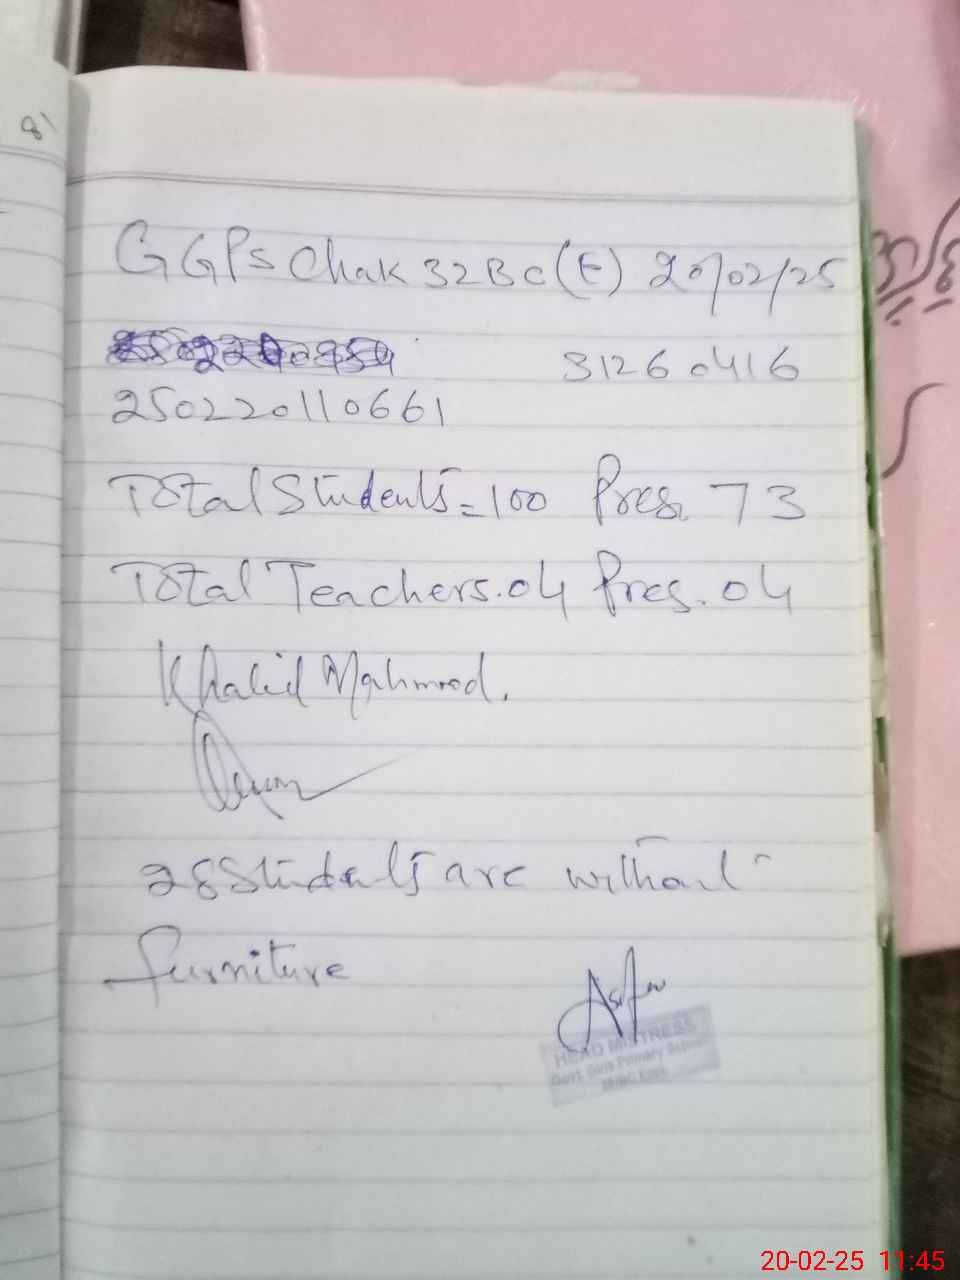 GGPS Chak 32BC(E) 20/02/25
31260416
250220110661
Total Students = 100 Pres. 73
Total Teachers. 04 Pres. 04
Khalid Mahmood.
28 Students are without
furniture
HEAD MISTRESS
Govt. Girls Primary School
20-02-25 11:45